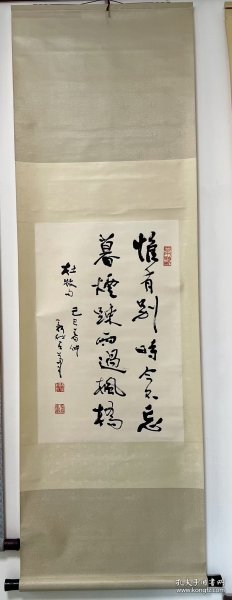 惟有别時今不忘
暮煙疎雨過楓橋
杜牧句
己巳
孔夫子旧书网
www.kongfz.com